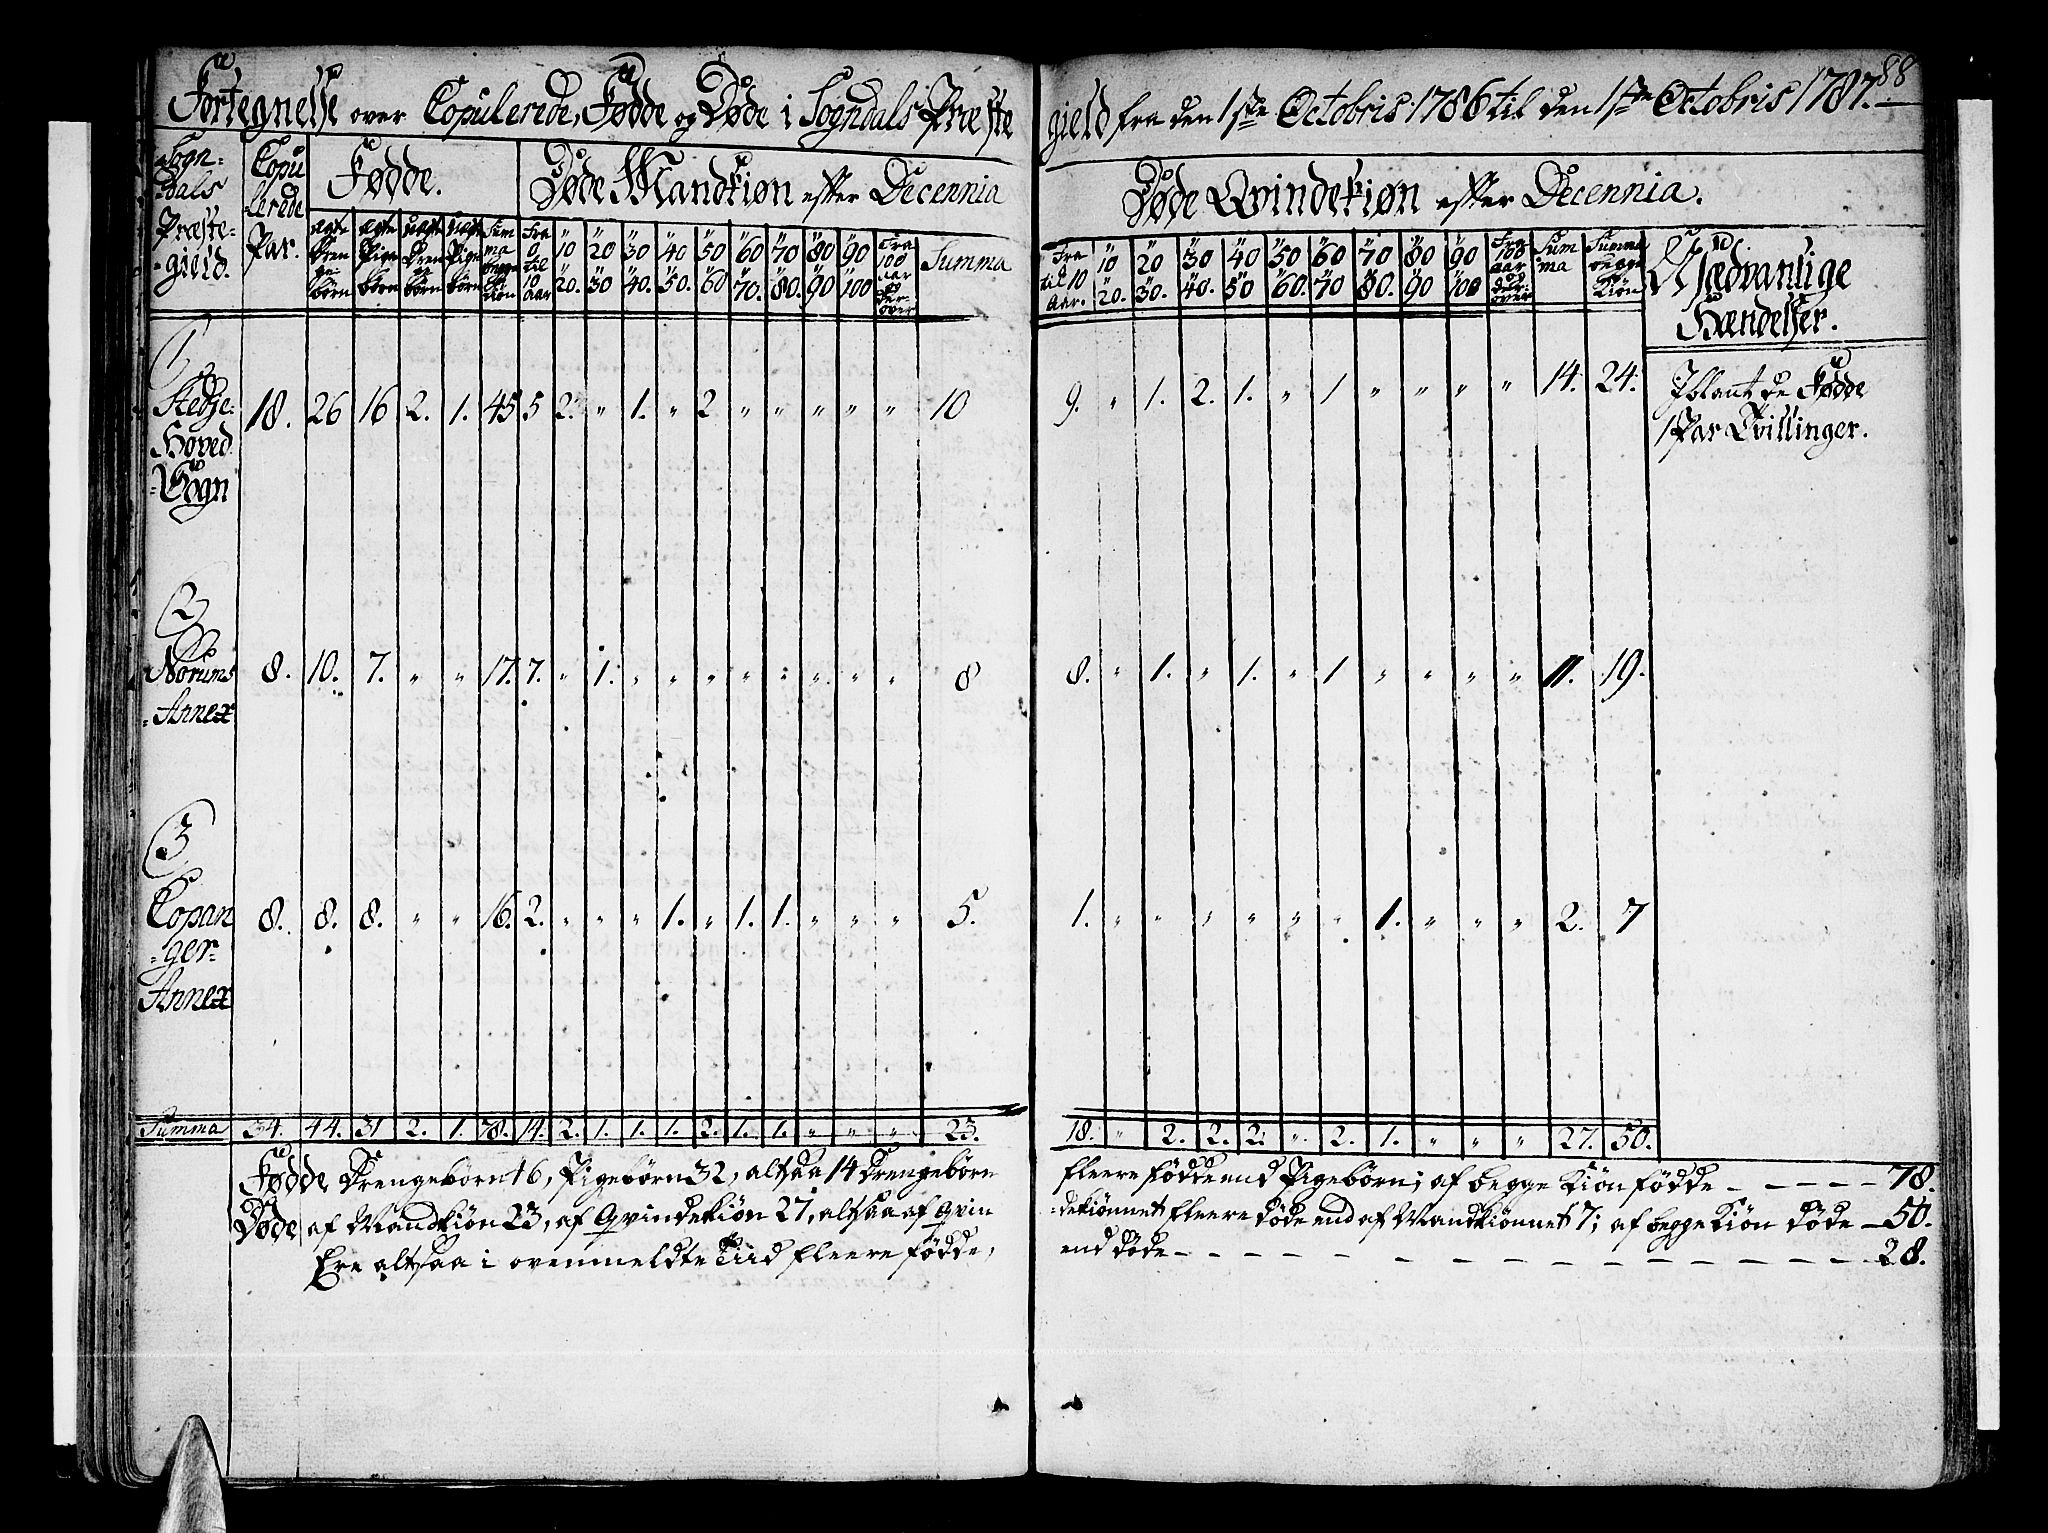 88
Fortegnelse over Copulerede, Fødde og Døde i Sogndals Præste
gield fra den 1ste Octobris 1786 til den 1ste Octobris 1787.
Sogn-
dals
Præste-
-gield.
Copu
lerede
Par.
Fødde.
Døde Mandkiøn efter Decennia
ægte Dren ge- børn
ægte Pige børn
uægt Dren ge børn
uægt Pige børn
Sum ma begge Kiøn
Fra 0 til 10 aar
" 10 " 20.
" 20 " 30
" 30 " 40.
" 40 " 50.
" 50 " 60
" 60 " 70.
" 70 " 80.
" 80 " 90
" 90 " 100
Fra 100 aar og der- over
Summa
Døde Qvindekiøn efter Decennia.
Fra til 10 Aar.
" 10 " 20.
" 20 " 30.
" 30 " 40.
" 40 " 50
" 50 " 60.
" 60 " 70
" 70 " 80.
" 80 " 90
" 90 " 100
Fra 100 aar og der- over
Sum ma
Summa begge Kiøn
Usædvanlige
Hændelser.
1
Stedje-
Hoved
-Sogn
18. 26 16 2. 1. 45 5 2. " 1. " 2 " " " " " 10
9. " 1. 2. 1. " 1 " " " " 14. 24.
Iblant de Fødde
1 Par Tvillinger.
2
Norums
-Annex
8. 10. 7. " " 17. 7. " 1. " " " " " " " " 8
8. " 1. " 1. " 1 " " " " 11. 19.
3
Copan
-ger-
Annex
8. 8. 8. " " 16. 2. " " " 1. " 1. 1. " " " 5.
1. " " " " " " 1. " " " 2. 7
Summa 34. 44. 31 2. 1. 78. 14. 2. 1. 1. 1. 2. 1. 1. " " " 23.
18. " 2. 2. 2. " 2. 1. " " " 27. 50.
Fødde Drengebørn 46, Pigebørn 32, altsaa 14 Drengebørn
fleere fødde end Pigebørn; af begge Kiøn fødde - - - - - 78.
Døde af Mandkiøn 23, af Qvindekiøn 27, altsaa af Qvin
dekiønnet fleere døde end af Mandkiønnet 7; af begge Kiøn døde - 50.
Ere altsaa i ovenmeldte Tiid fleere fødde,
end døde - - - - - - - - - - - - - 28.